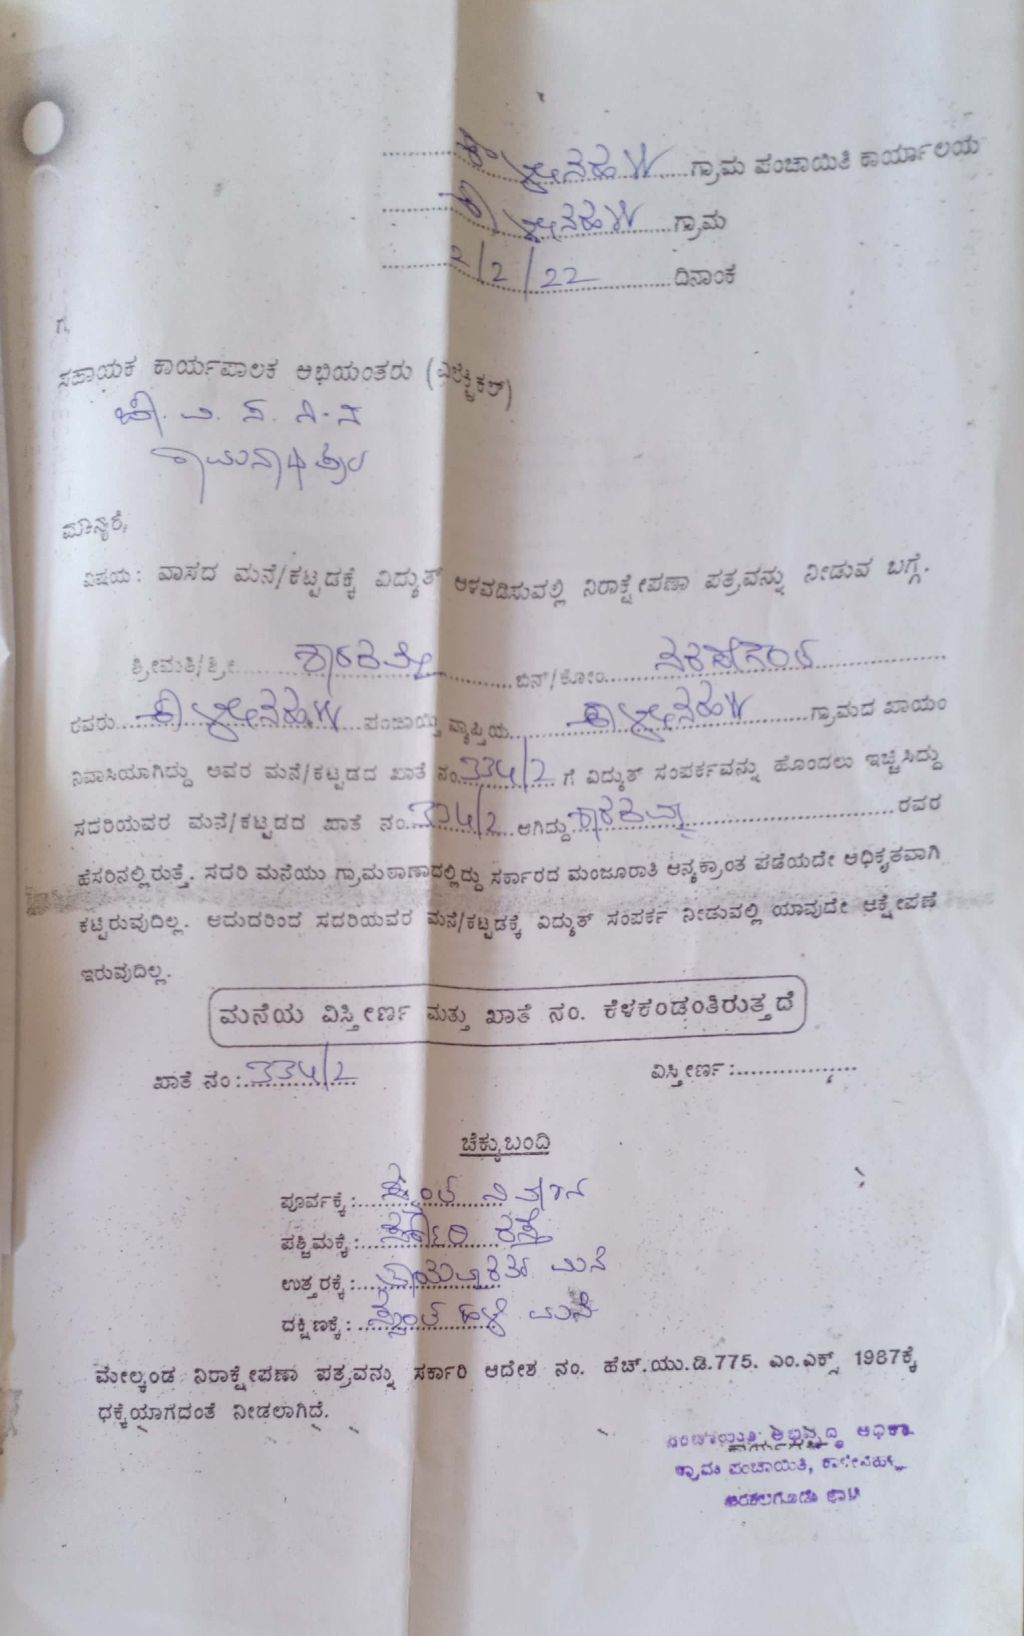 ಕಾಳೇನಹಳ್ಳಿ ಗ್ರಾಮ ಪಂಚಾಯಿತಿ ಕಾರ್ಯಾಲಯ
ಕಾಳೇನಹಳ್ಳಿ ಗ್ರಾಮ
2/2/22 ದಿನಾಂಕ
ಗೆ,
ಸಹಾಯಕ ಕಾರ್ಯಪಾಲಕ ಅಭಿಯಂತರು (ಎಲೆಕ್ಟ್ರಿಕಲ್)
ರಾಮನಾಥಪುರ
ಮಾನ್ಯರೆ,
ವಿಷಯ: ವಾಸದ ಮನೆ/ಕಟ್ಟಡಕ್ಕೆ ವಿದ್ಯುತ್ ಅಳವಡಿಸುವಲ್ಲಿ ನಿರಾಕ್ಷೇಪಣಾ ಪತ್ರವನ್ನು ನೀಡುವ ಬಗ್ಗೆ.
ಶ್ರೀಮತಿ/ಶ್ರೀ ಬಿನ್/ಕೋಂ
ರವರು ಕಾಳೇನಹಳ್ಳಿ ಪಂಚಾಯ್ತಿ ವ್ಯಾಪ್ತಿಯ ಕಾಳೇನಹಳ್ಳಿ ಗ್ರಾಮದ ಖಾಯಂ
ನಿವಾಸಿಯಾಗಿದ್ದು ಅವರ ಮನೆ/ಕಟ್ಟಡದ ಖಾತೆ ನಂ. 334/2 ಗೆ ವಿದ್ಯುತ್ ಸಂಪರ್ಕವನ್ನು ಹೊಂದಲು ಇಚ್ಛಿಸಿದ್ದು
ಸದರಿಯವರ ಮನೆ/ಕಟ್ಟಡದ ಖಾತೆ ನಂ. 334/2 ಆಗಿದ್ದು ರವರ
ಹೆಸರಿನಲ್ಲಿರುತ್ತೆ. ಸದರಿ ಮನೆಯು ಗ್ರಾಮಠಾಣಾದಲ್ಲಿದ್ದು ಸರ್ಕಾರದ ಮಂಜೂರಾತಿ ಅನ್ಯಕ್ರಾಂತ ಪಡೆಯದೇ ಅಧಿಕೃತವಾಗಿ
ಕಟ್ಟಿರುವುದಿಲ್ಲ. ಆದುದರಿಂದ ಸದರಿಯವರ ಮನೆ/ಕಟ್ಟಡಕ್ಕೆ ವಿದ್ಯುತ್ ಸಂಪರ್ಕ ನೀಡುವಲ್ಲಿ ಯಾವುದೇ ಆಕ್ಷೇಪಣೆ
ಇರುವುದಿಲ್ಲ.
ಮನೆಯ ವಿಸ್ತೀರ್ಣ ಮತ್ತು ಖಾತೆ ನಂ. ಕೆಳಕಂಡಂತಿರುತ್ತದೆ
ಖಾತೆ ನಂ: 334/2 ವಿಸ್ತೀರ್ಣ:
ಚೆಕ್ಕುಬಂದಿ
ಪೂರ್ವಕ್ಕೆ:
ಪಶ್ಚಿಮಕ್ಕೆ: ರಸ್ತೆ
ಉತ್ತರಕ್ಕೆ: ಮನೆ
ದಕ್ಷಿಣಕ್ಕೆ: ಮನೆ
ಮೇಲ್ಕಂಡ ನಿರಾಕ್ಷೇಪಣಾ ಪತ್ರವನ್ನು ಸರ್ಕಾರಿ ಆದೇಶ ನಂ. ಹೆಚ್.ಯು.ಡಿ.775. ಎಂ.ಎಕ್ಸ್ 1987ಕ್ಕೆ
ಧಕ್ಕೆಯಾಗದಂತೆ ನೀಡಲಾಗಿದೆ.
ಗ್ರಾಮ ಪಂಚಾಯಿತಿ, ಕಾಳೇನಹಳ್ಳಿ